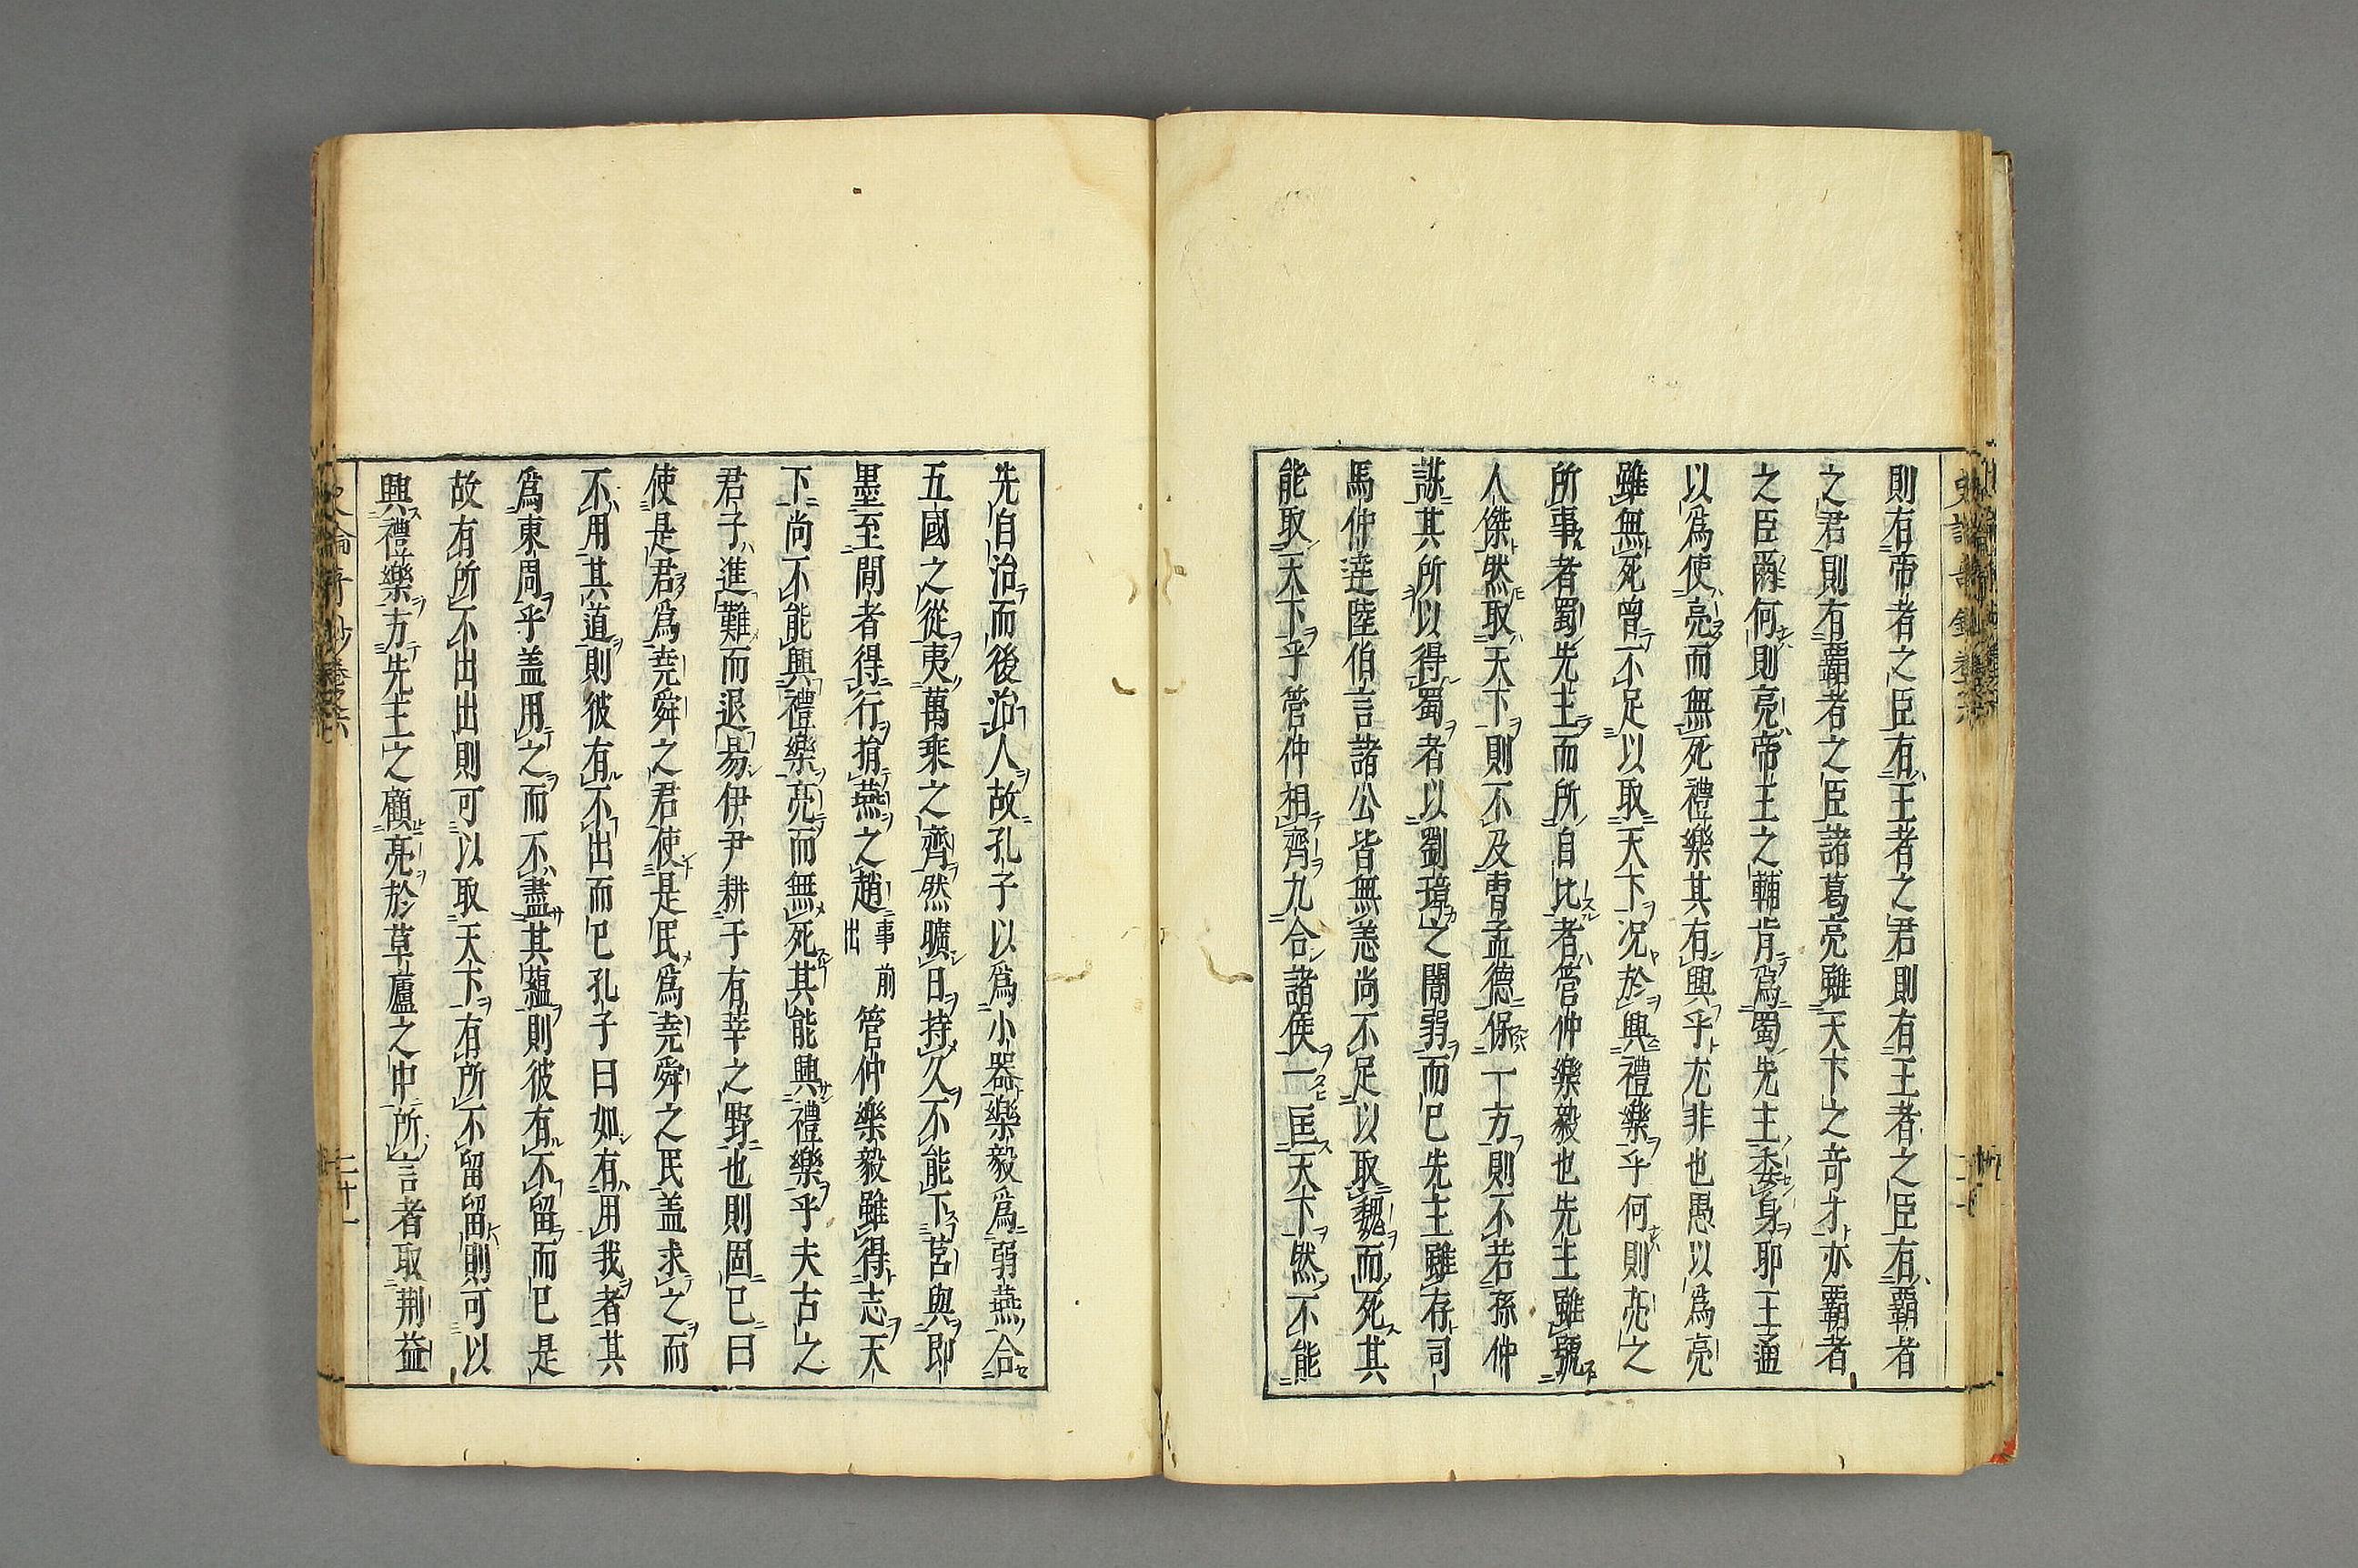 則有帝者之臣有王者之君則有王者之臣有霸者
之君則有霸者之臣諸葛亮雖天下之竒才亦霸者
之臣爾何則亮帝王之輔肯爲蜀先主委身耶王通
以爲使亮而無死禮樂其有興乎尤非也愚以爲亮
雖無死曾不足以取天下况於興禮樂乎何則亮之
所事者蜀先主而所自比者管仲樂毅也先主雖號
人傑然取天下則不及曹孟德保一方則不若孫仲
謀其所以得蜀者以劉璋之闇弱而已先主雖存司
馬仲達陸伯言諸公皆無恙尚不足以取魏而死其
能取天下乎管仲相齊九合諸侯一匡天下然不能
先自治而後治人故孔子以爲小器樂毅爲弱燕合
五國之從夷萬乘之齊然曠日持久不能下莒與即
墨至間者得行捐燕之趙事前出管仲樂毅雖得志天
下尚不能興禮樂亮而無死其能興禮樂乎夫古之
君子進難而退易伊尹耕于有莘之野也則固已曰
使是君爲堯舜之君使是民爲堯舜之民盖求之而
不用其道則彼有不出而已孔子曰如有用我者其
爲東周乎盖用之而不盡其蘊則彼有不留而已是
故有所不出出則可以取天下有所不留留則可以
興禮樂方先主之顧亮於草廬之中所言者取荆益
二十一